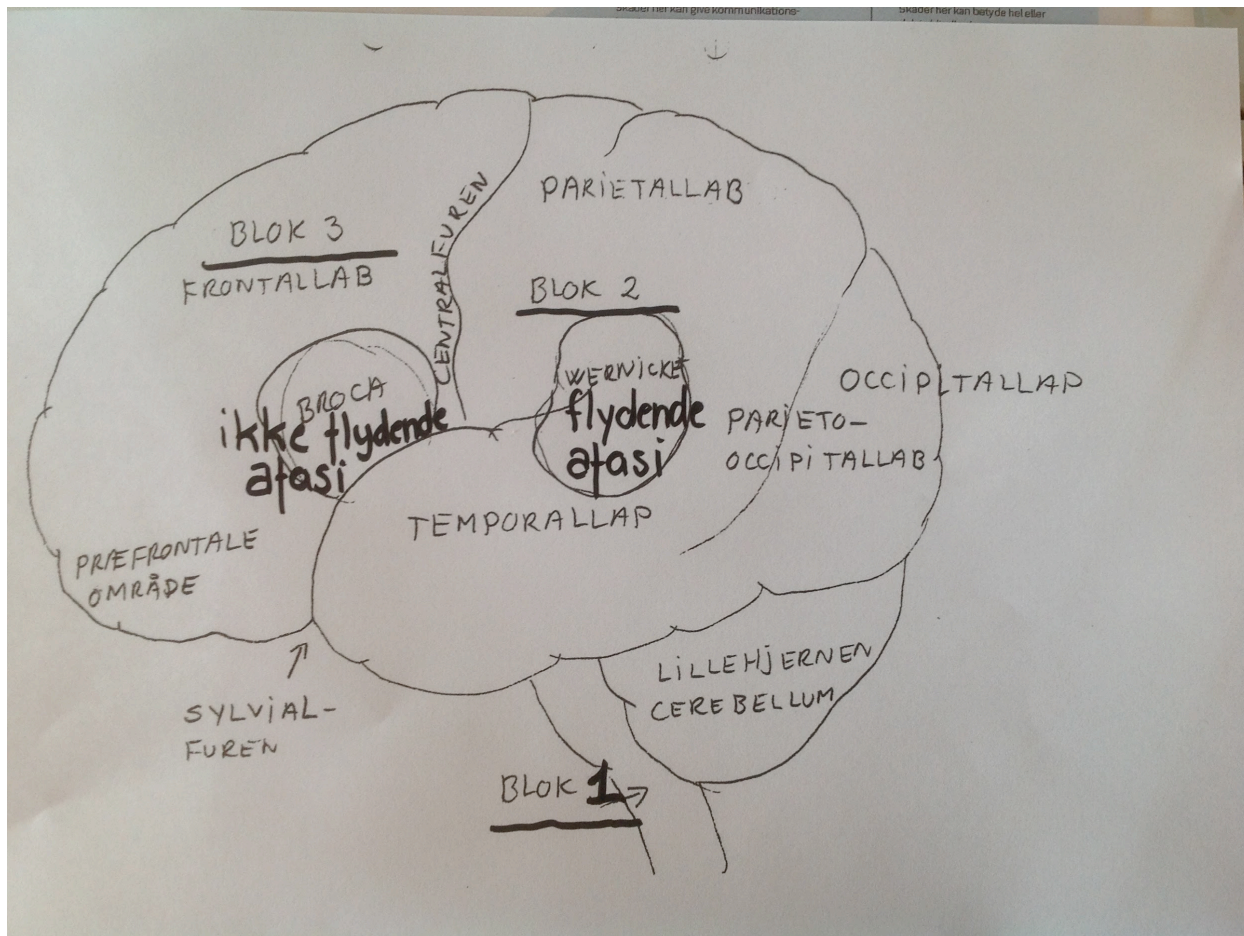 Skader her kan give kommunikations-
Skader her kan betyde hel eller
PARIETALLAB
BLOK 3
FRONTALLAB
CENTRALFUREN
BLOK 2
WERNICKE
flydende
afasi
BROCA
ikke flydende
afasi
OCCIPITALLAP
PARIETO-
OCCIPITALLAB
TEMPORALLAP
PRÆFRONTALE
OMRÅDE
LILLEHJERNEN
CEREBELLUM
SYLVIAL-
FUREN
BLOK 1